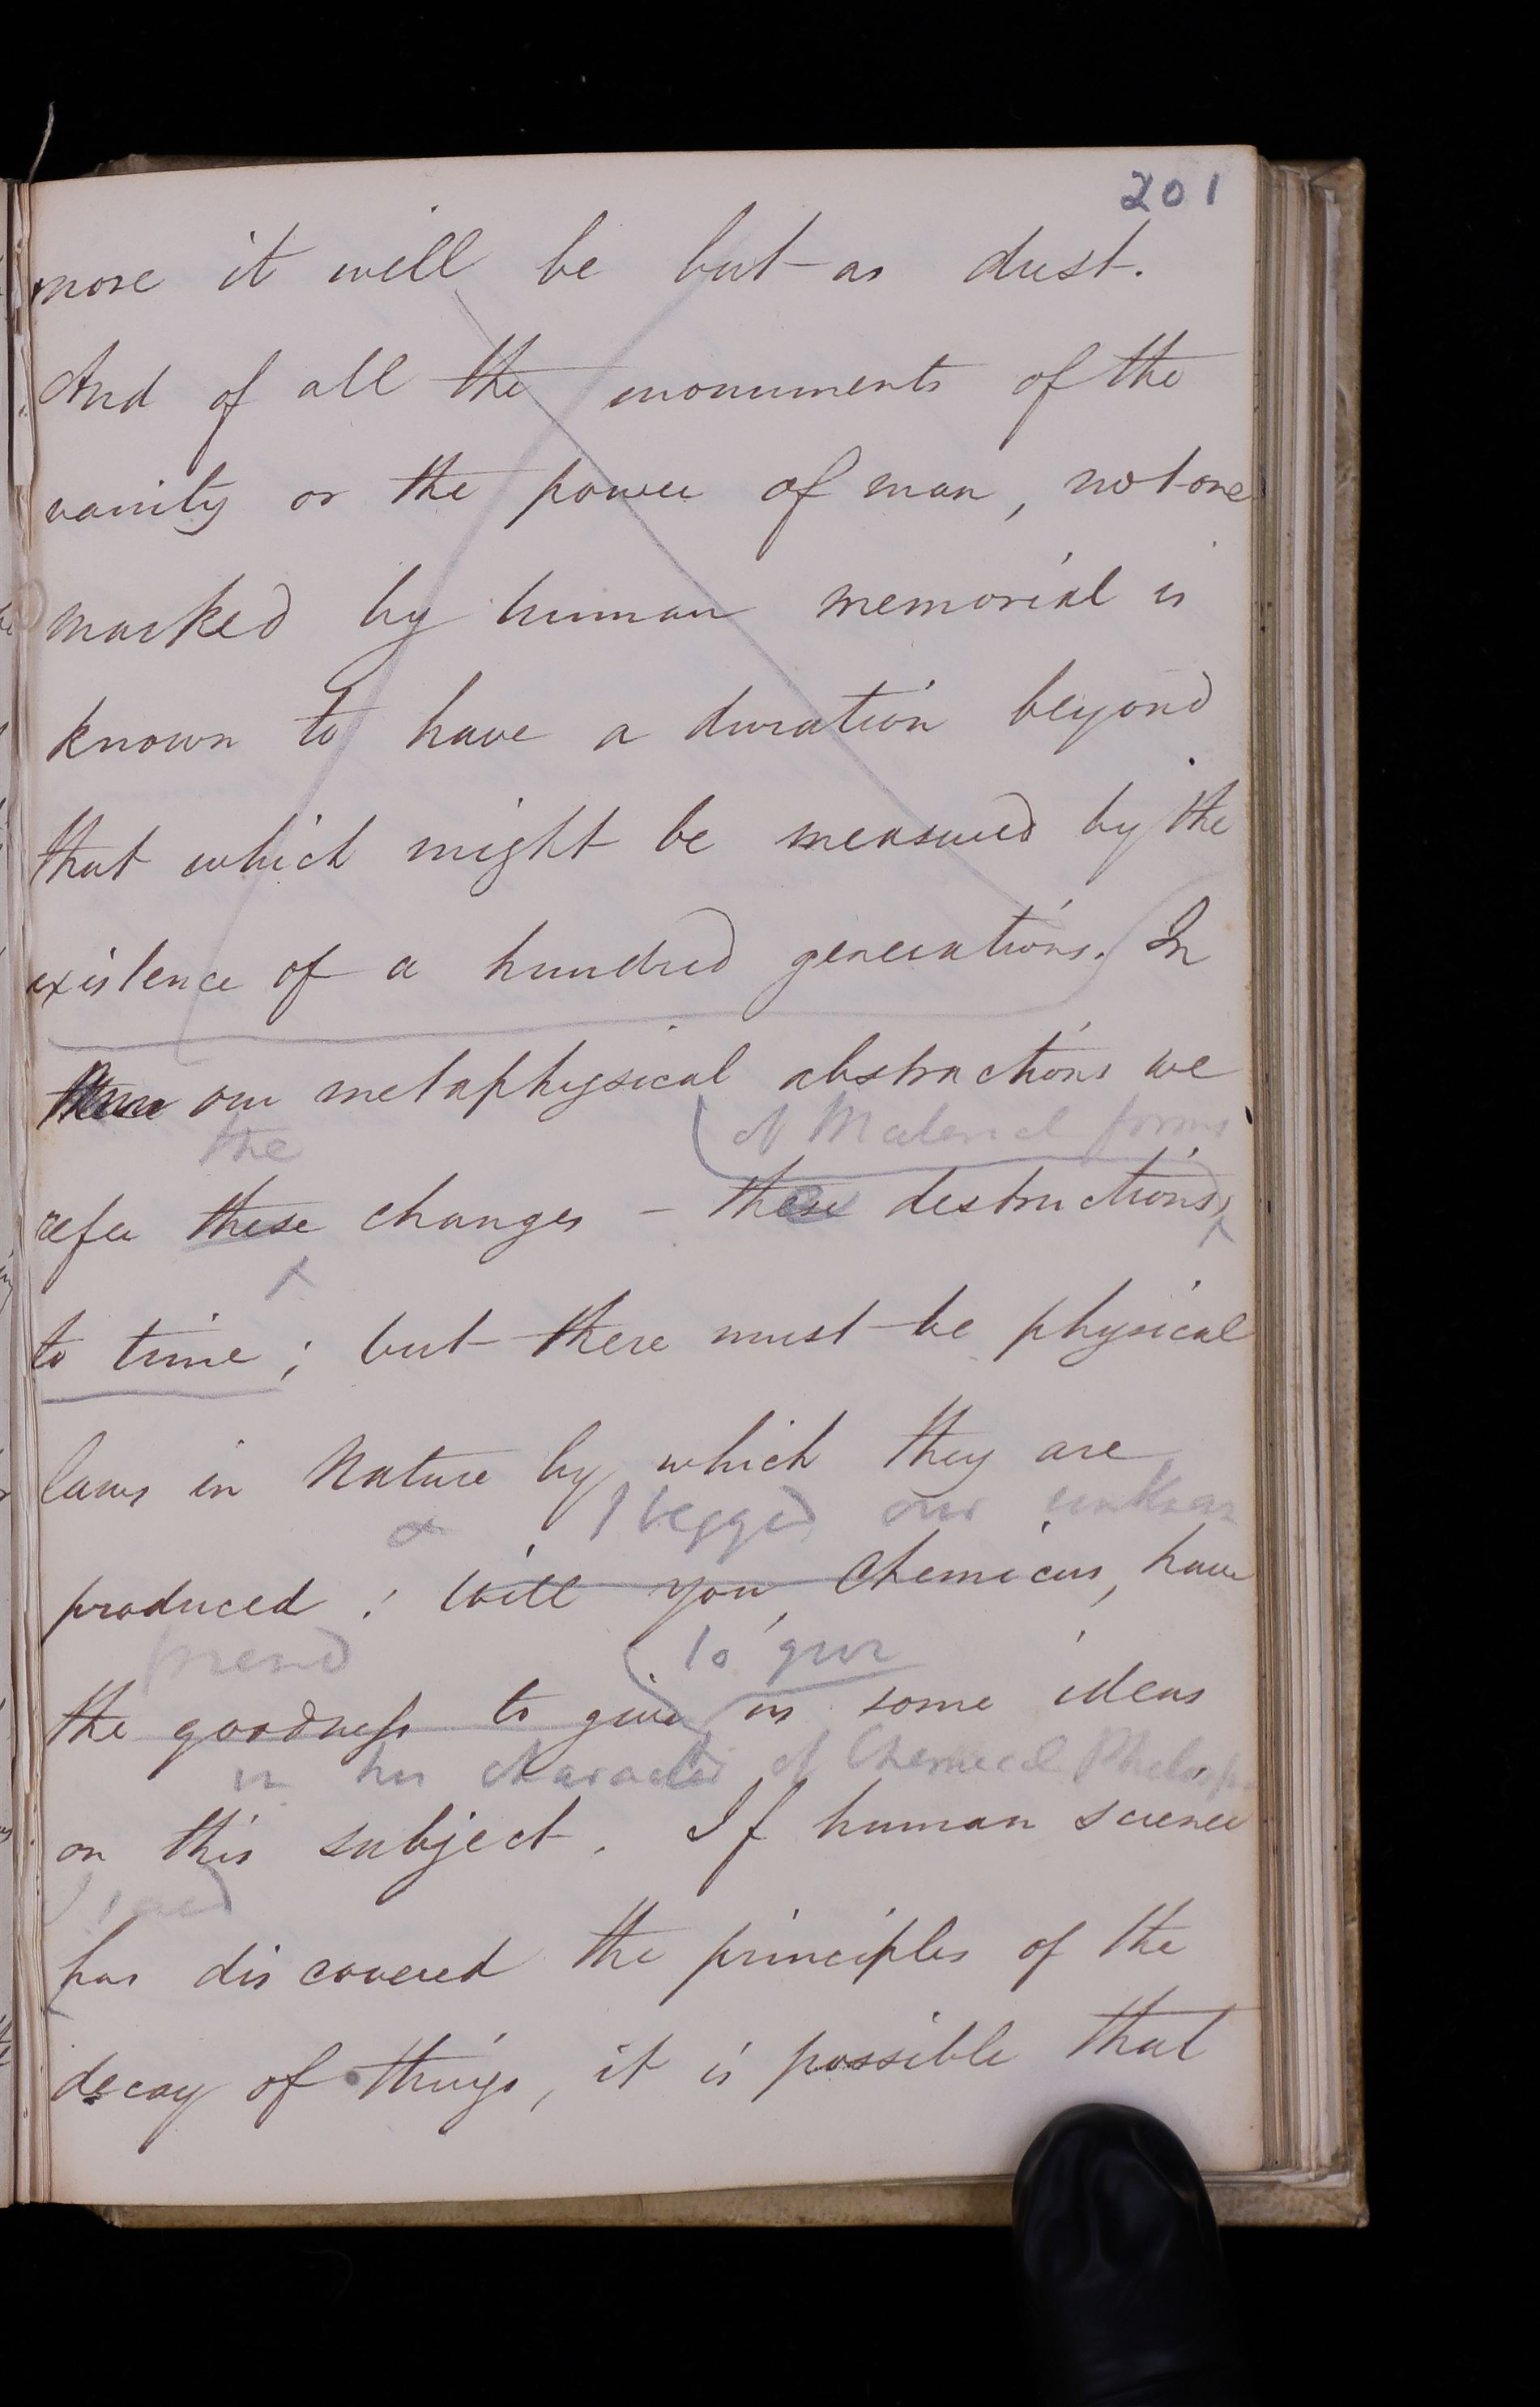 201
more it will be but as dust.
And of all the monuments of the
vanity or the power of man, not one
marked by human memorial is
known to have a duration beyond
that which might be measured by the
existence of a hundred generations. In
our metaphysical abstractions we
the of Material forms
refer these changes – these destructions,
to time; but there must be physical
laws in Nature by which they are
& I begged our unknown
produced: Will you, Chemicus, have
friend to give
the goodness to give us some ideas
in his character of Chemical Philosopher
on this subject. If human science
I said
has discovered the principles of the
decay of things, it is possible that